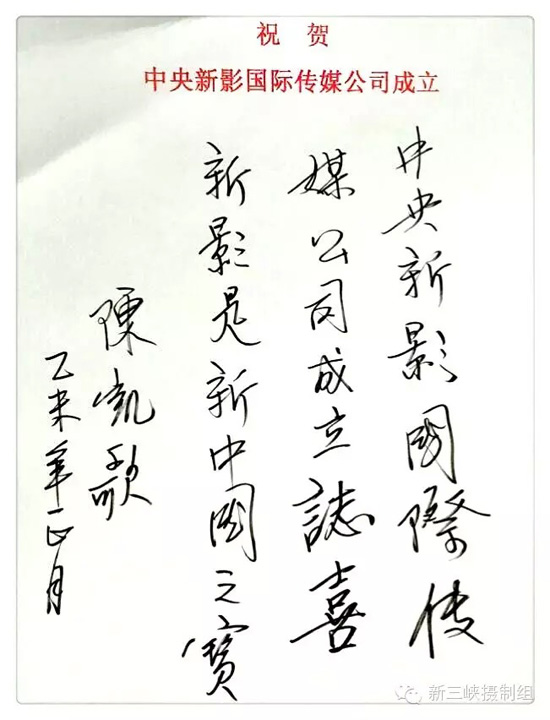 祝 贺
中央新影国际传媒公司成立
中央新影國際传
媒公司成立誌喜
新影是新中國之寶
陳凱歌
乙未年正月
新三峡摄制组